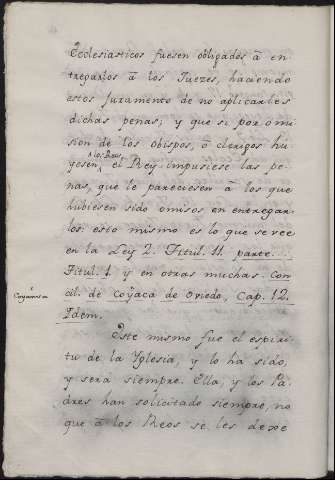 Eclesiasticos fuesen obligados â en
tregarlos â los Juezes, haciendo
estos Juramento de no aplicarles
dichas penas; y que si por omi
sion de los obispos, ô clerigos hu
yesen los Reos, el Rey impusiese las pe
nas, que le pareciesen â los que
hubiesen sido omisos en entregar
los: esto mismo es lo que se vee
en la Ley 2. Titul. 11. parte.
Titul. 1. y en otras muchas. Con
cil. de Coyaca de Oviedo, Cap. 12.
Idem.
Este mismo fue el espiri
tu de la Yglesia, y lo ha sido,
y será siempre. Ella, y los Pa
dres han solicitado siempre, no
que â los Reos se les dexe